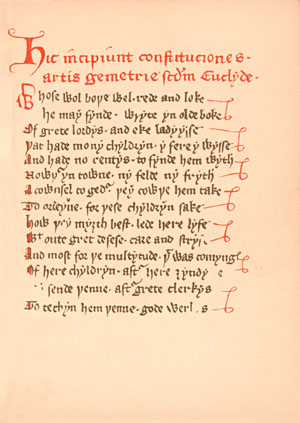 Hic incipiunt constituciones
artis gemetrie scdm Euclyde.
Whose wol boþe wel rede and loke
he may fynde wryte yn olde boke
Of grete lordys and eke ladyysse
Þat hade mony chyldryn y fere y wysse
And hade no rentys to fynde hem wyth
Nowþr yn towne ny felde ny fryth
A cownsel togedr þey cowþe hem take
To ordeyne for þese chyldryn sake
how þey myȝth best lede here lyfe
Wt oute gret desese care and stryf
And most for þe multytude þt was comynge
Of here chyldryn aftr here ȝyndynge
sende þenne aftr grete clerkys
To techyn hem þenne gode werkys